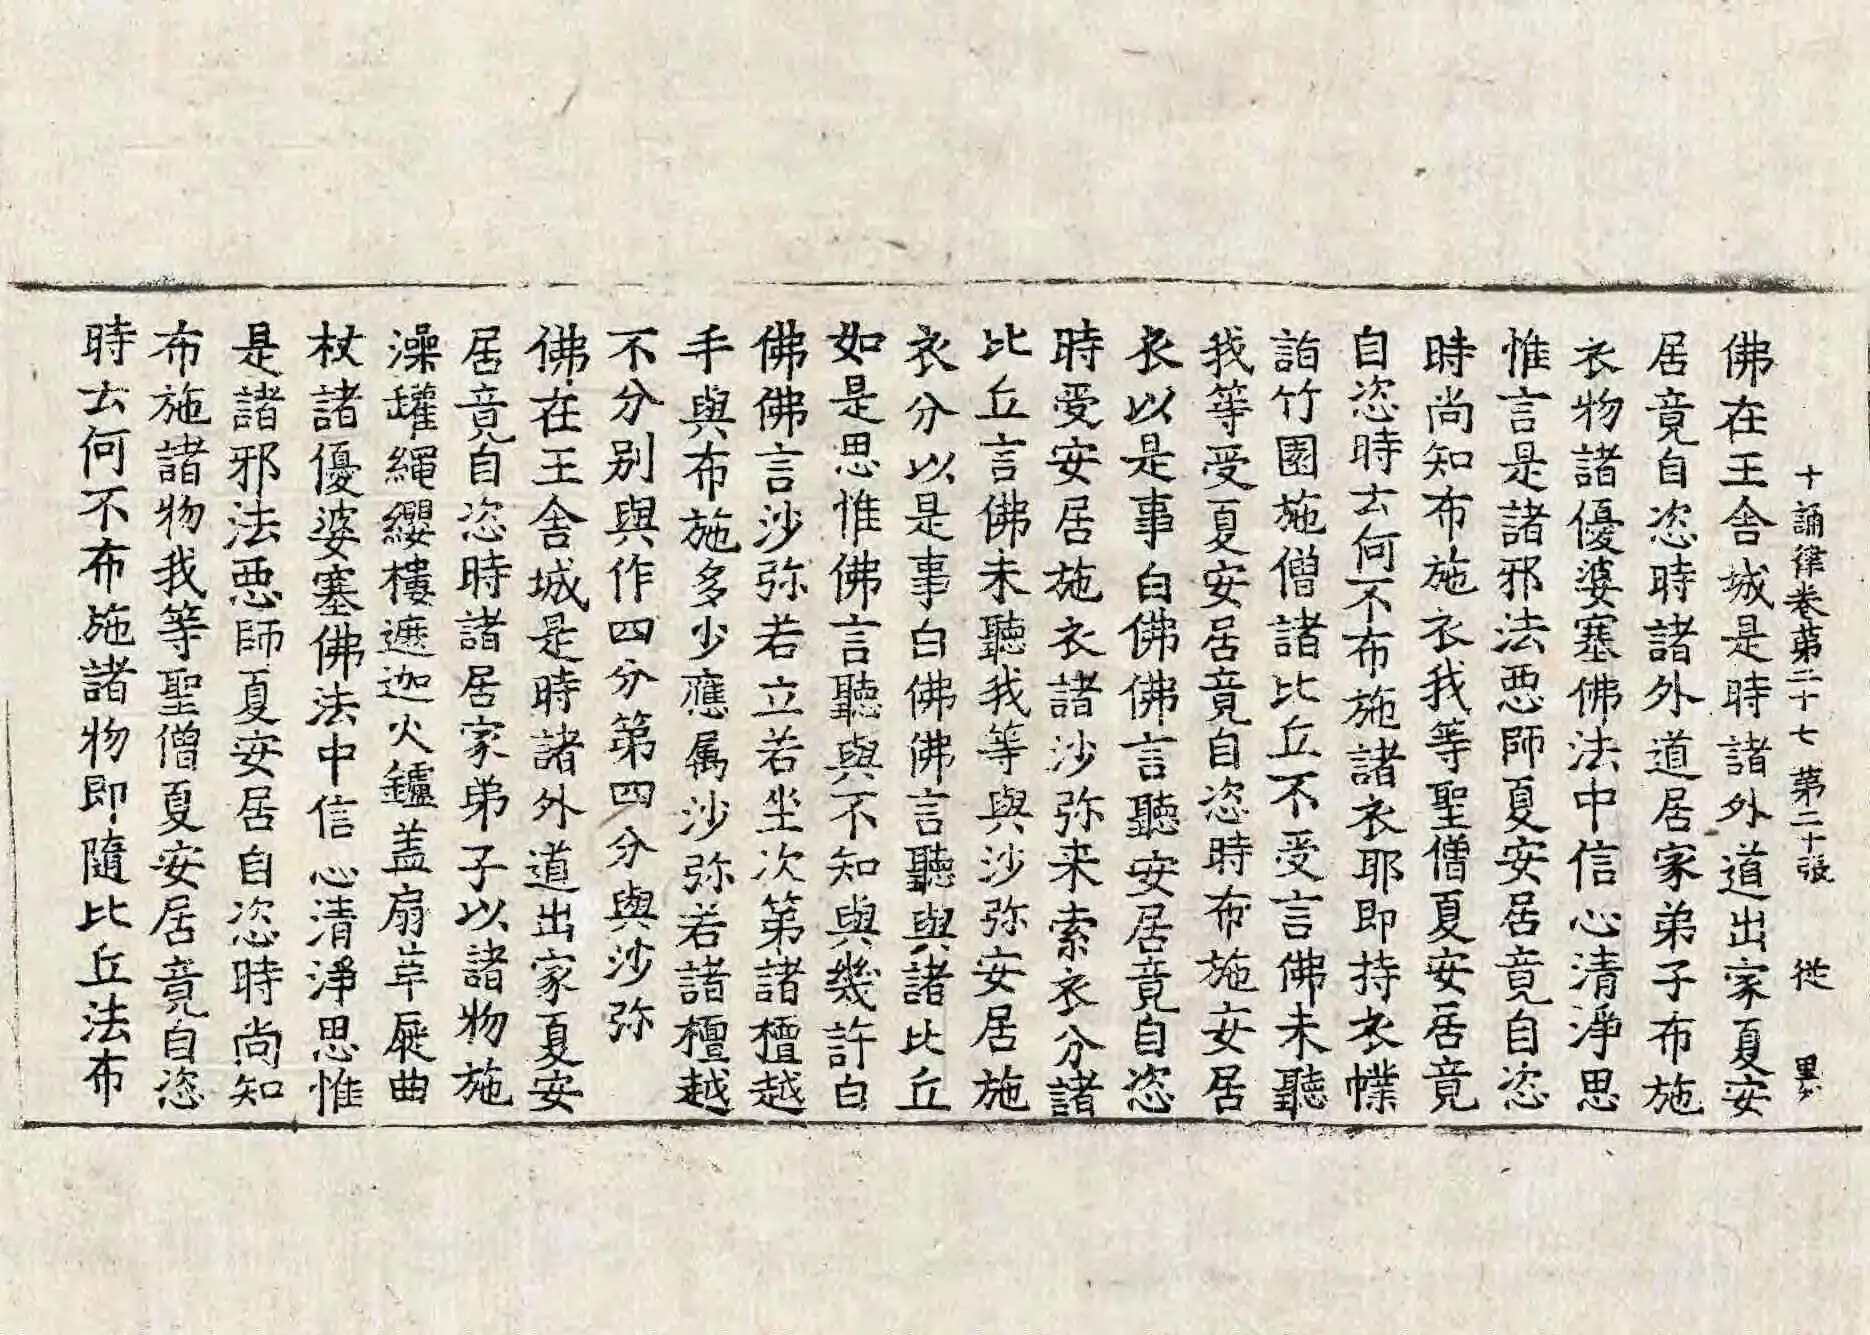 十誦律卷第二十七 第二十張 従
佛在王舎城是時諸外道出家夏安
居竟自恣時諸外道居家弟子布施
衣物諸優婆塞佛法中信心清淨思
惟言是諸邪法悪師夏安居竟自恣
時尚知布施衣我等聖僧夏安居竟
自恣時云何不布施諸衣耶即持衣㡤
詣竹園施僧諸比丘不受言佛未聽
我等受夏安居竟自恣時布施安居
衣以是事白佛佛言聽安居竟自恣
時受安居施衣諸沙弥来索衣分諸
比丘言佛未聽我等與沙弥安居施
衣分以是事白佛佛言聽與諸比丘
如是思惟佛言聽與不知與幾許白
佛佛言沙弥若立若坐次第諸檀越
手與布施多少應属沙弥若諸檀越
不分别與作四分第四分與沙弥
佛在王舎城是時諸外道出家夏安
居竟自恣時諸居家弟子以諸物施
澡罐繩纓樓遮迦火鑪盖扇革屣曲
杖諸優婆塞佛法中信心清淨思惟
是諸邪法悪師夏安居自恣時尚知
布施諸物我等聖僧夏安居竟自恣
時云何不布施諸物即隨比丘法布